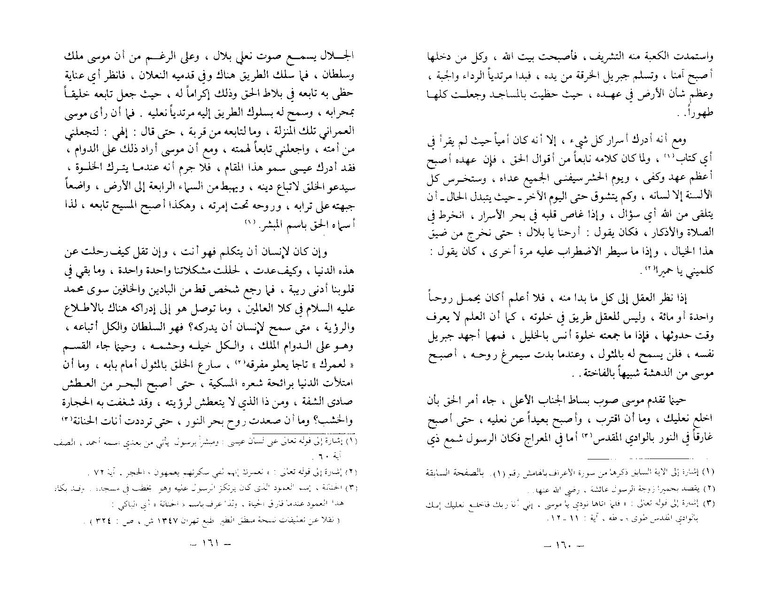 واستمدت الكعبة منه التشريف، فأصبحت بيت الله ، وكل من دخلها
أصبح آمنا ، وتسلم جبريل الخرقة من يده ، فبدا مرتدياً الرداء والجبة ،
وعظم شأن الأرض في عهـده ، حيث حظيت بالمساجد وجعلت كلها
طهوراً . .
ومع أنه أدرك أسرار كل شيء ، إلا أنه كان أمياً حيث لم يقرأ في
أي كتاب(١) ، ولما كان كلامه نابعاً من أقوال الحق ، فإن عهده أصبح
أعظم عهد وكفى ، ويوم الحشر سيفنى الجميع عداه ، وستخرس كل
الألسنة إلا لسانه ، وكم يتشوق حتى اليوم الآخر ـ حيث يتبدل الحال ـ أن
يتلقى من الله أي سؤال ، وإذا غاص قلبه في بحر الأسرار ، انخرط في
الصلاة والأذكار ، فكان يقول : أرحنا يا بلال ؛ حتى نخرج من ضيق
هذا الخيال ، وإذا ما سيطر الاضطراب عليه مرة أخرى ، كان يقول :
كلميني يا حميرا(٢) .
إذا نظر العقل إلى كل ما بدا منه ، فلا أعلم أكان يحمل روحاً
واحدة أو مائة ، وليس للعقل طريق في خلوته ، كما أن العلم لا يعرف
وقت حدوثها ، فإذا ما جمعته خلوة أنس بالخليل ، فمهما أجهد جبريل
نفسه ، فلن يسمح له بالمثول ، وعندما بدت سيمرغ روحه ، أصبح
موسى من الدهشة شبيهاً بالفاختة . .
حينما تقدم موسى صوب بساط الجناب الأعلى ، جاء أمر الحق بأن
اخلع نعليك ، وما أن اقترب ، وأصبح بعيداً عن نعليه ، حتى أصبح
غارقاً في النور بالوادي المقدس(٣) أما في المعراج فكان الرسول شمع ذي
(١) إشارة إلى الآية السابق ذكرها من سورة الأعراف بالهامش رقم (١) بالصفحة السابقة
(٢) يقصد بحميرا زوجة الرسول عائشة ، رضي الله عنها .
(٣) إشارة إلى قوله تعالى : « فلما أتاها نودي يا موسى ، إني أنا ربك فاخلع نعليك إنك
بالوادي المقدس طوى » ـ طه ، آية : ١١ ـ ١٢ .
ـ ١٦٠ ـ
الجـلال يسمـع صوت نعلي بلال ، وعلى الرغـم من أن موسى ملك
وسلطان ، فما سلك الطريق هناك وفي قدميه النعلان ، فانظر أي عناية
حظى به تابعه في بلاط الحق وذلك إكراماً له ، حيث جعل تابعه خليقاً
بمحرابه ، وسمح له بسلوك الطريق إليه مرتدياً نعليه . فما أن رأى موسى
العمراني تلك المنزلة ، وما لتابعه من قربة ، حتى قال : إلهي : لتجعلني
من أمته ، واجعلني تابعاً لهمته ، ومع أن موسى أراد ذلك على الدوام ،
فقد أدرك عيسى سمو هذا المقام ، فلا جرم أنه عندما يترك الخلوة ،
سيدعو الخلق لاتباع دينه ، ويهبط من السماء الرابعة إلى الأرض ، واضعاً
جبهته على ترابه ، وروحه تحت إمرته ، وهكذا أصبح المسيح تابعه ، لذا
أسماه الحق باسم المبشر. (١)
وإن كان لإنسان أن يتكلم فهو أنت ، وإن تقل كيف رحلت عن
هذه الدنيا ، وكيف عدت ، لحللت مشكلاتنا واحدة واحدة ، وما بقي في
قلوبنا أدنى ريبة ، فما رجع شخص قط من البادين والخافين سوى محمد
عليه السلام في كلا العالمين ، وما توصل هو إلى إدراكه هناك بالاطلاع
والرؤية ، متى سمح لإنسان أن يدركه؟ فهو السلطان والكل أتباعه ،
وهو على الدوام الملك ، والكل خيله وحشمه ، وحينما جاء القسم
« لعمرك » تاجا يعلو مفرقه(٢) ، سارع الخلق بالمثول أمام بابه ، وما أن
امتلأت الدنيا برائحة شعره المسكية ، حتى أصبح البحر من العطش
صادى الشفة ، ومن ذا الذي لا يتعطش لرؤيته ، وقد شغفت به الحجارة
والخشب؟ وما أن صعدت روح بحر النور ، حتى ترددت أنات الحنانة (٣)
(١) إشارة إلى قوله تعالى على لسان عيسى : ومبشراً برسول يأتي من بعدي اسمه أحمد ، الصف
آية ٦٠ .
(٢) إشارة إلى قوله تعالى : « لعمرك إنهم لفي سكرتهم يعمهون » ـ الحجر ـ آية ٧٢ .
(٣) الحنانة ، إسم العمود الذي كان يرتكز الرسول عليه وهو يخطب في مسجده ، وقد بكاه
هذا العمود عندما فارق الحياة ، ولذا عرف باسم « الحنانة » أي الباكي :
( نقلا عن تعليقات نسخة منطق الطير طبع تهران ١٣٤٧ ش ، ص : ٣٢٤ ) .
ـ ١٦١ ـ